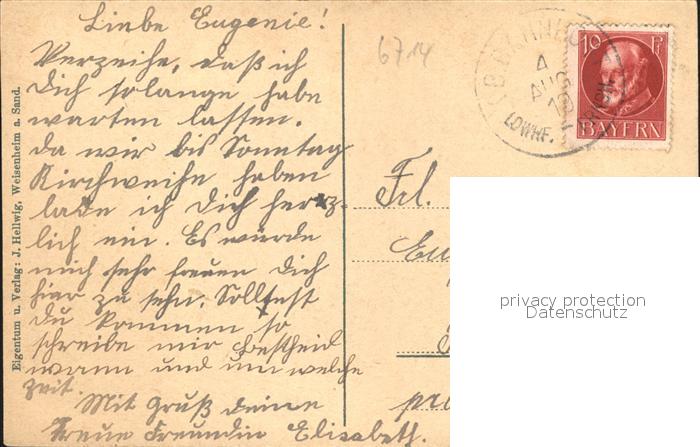 Liebe Eugenie!
Verzeihe, daß ich
dich solange habe
warten lassen.
Da wir bis Sonntag
Kirchweihe haben
lade ich Dich herz-
lich ein. Es würde
mich sehr freuen Dich
hier zu sehn. Solltest
Du kommen so
schreibe mir Bescheid
wann und um welche
Zeit.
Mit Gruß deine
treue Freundin Elisabeth.
Eigentum u. Verlag: J. Hellwig, Weisenheim a. Sand.
6714
4
AUG
LDWHF.
10 Pf
BAYERN
Frl.
Eu
privacy protection
Datenschutz